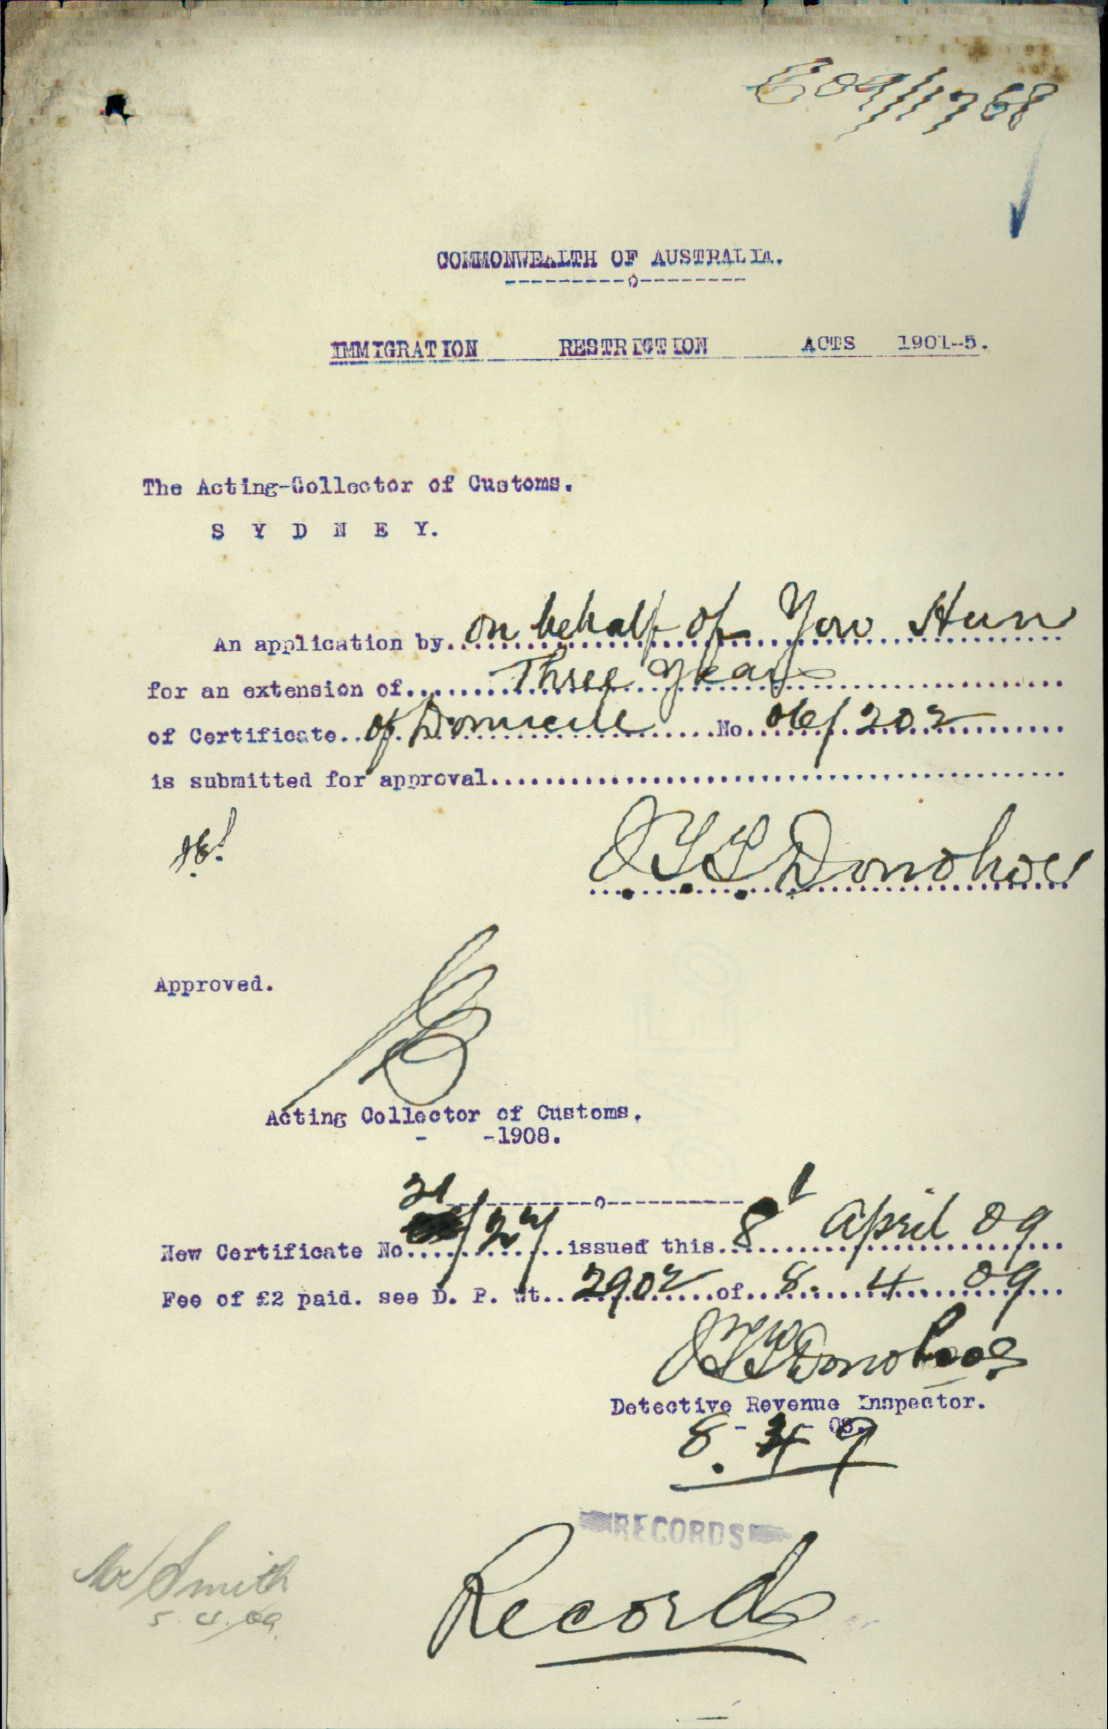 C09/1768
COMMONWEALTH OF AUSTRALIA.
---------o--------
IMMIGRATION RESTRICTION ACTS 1901-5.
The Acting-Collector of Customs.
S Y D N E Y.
An application by..on behalf of Yow Hun
for an extension of....Three Years
of Certificate..of Domicile....No.06/202
is submitted for approval
J.T.T. Donohoe
Approved.
Acting Collector of Customs.
- -1908.
---------o---------
21
New Certificate No..../27....issued this..8 April 09
Fee of £2 paid. see D. P. ....2902....of..8. 4. 09
J.T.T. Donohoe
Detective Revenue Inspector.
8 - 4 - 09
RECORDS
Mr Smith
5.4.09
Records